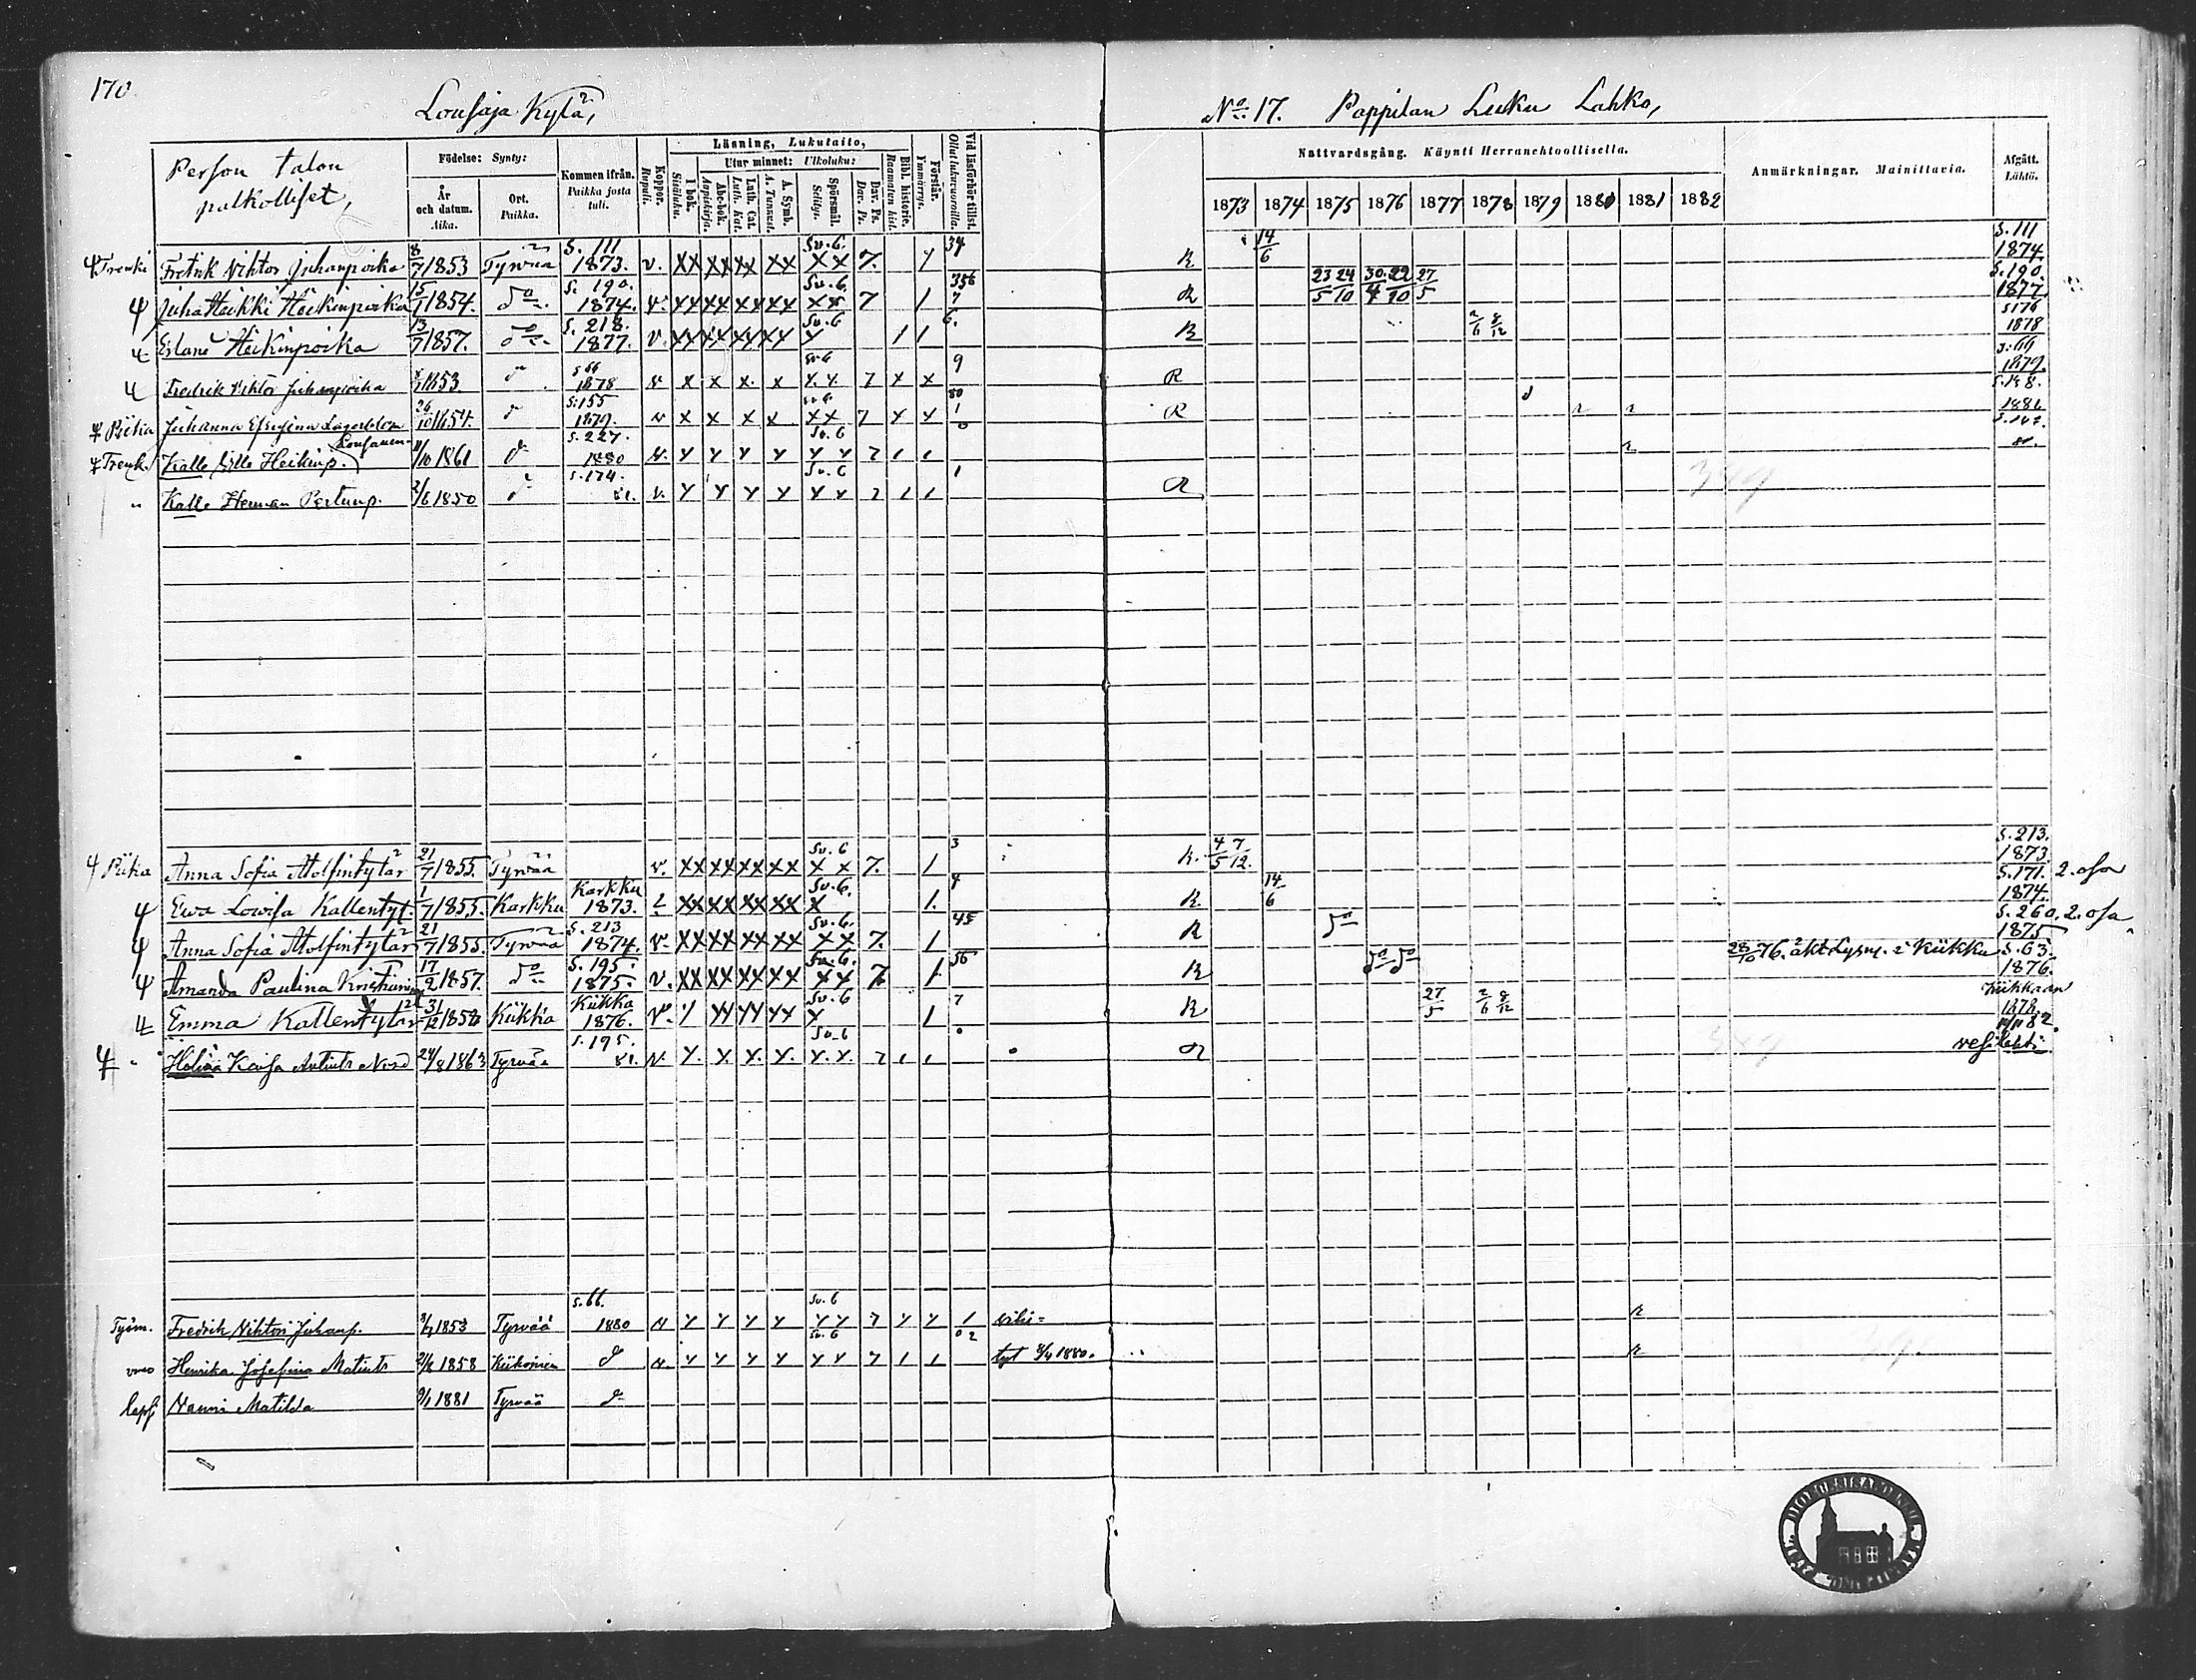 170
Lousaja Kylä,
No 17. Pappilan Luku Lahko,
Person talon
palkolliset,
Födelse: Synty:
År och datum. Aika.
Ort. Paikka.
Kommen ifrån. Paikka josta tuli.
Koppor. Rupuli.
Läsning, Lukutaito,
I bok. Sisäluku.
Utur minnet: Ulkoluku:
Abc-bok. Aapiskirja.
Luth. Cat. Luth. Kat.
A. Symb. A. Tunnust.
Spörsmål. Selitys.
Dav. Ps. Dav. Ps.
Bibl. historie. Raamatun hist.
Förstår. Ymmärrys.
Vid läsförhör tillst. Ollut lukuvuoroilla.
Nattvardsgång. Käynti Herranehtoollisella.
1873 1874 1875 1876 1877 1878 1879 1880 1881 1882
Anmärkningar. Mainittavia.
Afgått. Lähtö.
Frenki Fretrik Vihtor Juhanpoika 8/7 1853 Tyrvää S. 111 1873. v. XX XX XX XX Sv. 6 XX 7. 34 R 14/6 S. 111 1874.
Juha Heikki Heikinpoika 15/7 1854. do S. 190. 1874. v. XX XX XX XX Sv. 6 XX 7 1 356 7 R 23/5 24/10 30/4 22/10 27/5 S. 190. 1877.
Heikinpoika 13/7 1857. do S. 218. 1877. v XX XX XX XX Sv. 6 X 1 1 6. R 2/6 8/12 S 176 1878
Fredrik Vihtor Juhanpoika 1853. d S 66 1878 v x x x x Sv 6 x x 7 x x 9 R S. 66 1879.
Piika Juhanna Lagerblom 26/10 1854. d S. 155 1879. v x x x x x x 7 x x 80 1 R
Frenk. Kalle Heikinp. 11/10 1861 d S. 227. 1880 v. x x x x Sv. 6 x x 7 1 1 0
" Kalle Herman Pertunp. 2/6 1850 d S. 174. 81. v. x x x x Sv. 6 x x 7 1 1 1 R
Piika Anna Sofia Atolfintytär 21/7 1855. Tyrvää v. XX XX XX XX Sv. 6 X X 7. 1 3 R. 4/5 7/12. S. 213. 1873.
Ewa Lowisa Kallentyt. 1/7 1855. Karkku Karkku 1873. XX XX XX XX Sv. 6. X 1. 4 R 14/6 S. 171. 2. osa 1874.
Anna Sofia Atolfintytär 21/7 1855. Tyrvää S. 213 1874. v. XX XX XX XX Sv. 6. XX 7. 1 45 R do S. 260. 2. osa 1875
Amanda Paulina 17/2 1857. do S. 195. 1875. v. XX XX XX XX Sv. 6. XX 7 1 56 R do do 28/10 76. Kiikka S. 63. 1876.
Emma Kallentytär 31/12 1858 Kiikka Kiikka 1876. v. 1 XX XX XX Sv. 6 X 1 7 R 27/5 2/6 8/12 Kiikkaan 1878.
Kaisa Antints Nord 24/8 1863 Tyrvää S. 195. 81. v. x. x. x. x. Sv. 6 x. x. 7 1 1 R
vesilahti
Työm. Fredrik Vihtori Juhanp. 1853 Tyrvää S. 66. 1880 v x x x x Sv. 6 x x 7 x x 1 vihi=
vmo Henrika Josefina Matints 1858 Kiikoinen d v x x x x Sv. 6 x x 7 1 1 0 2 tyt 1880.
lapsi Nanni Matilda 1881 Tyrvää d